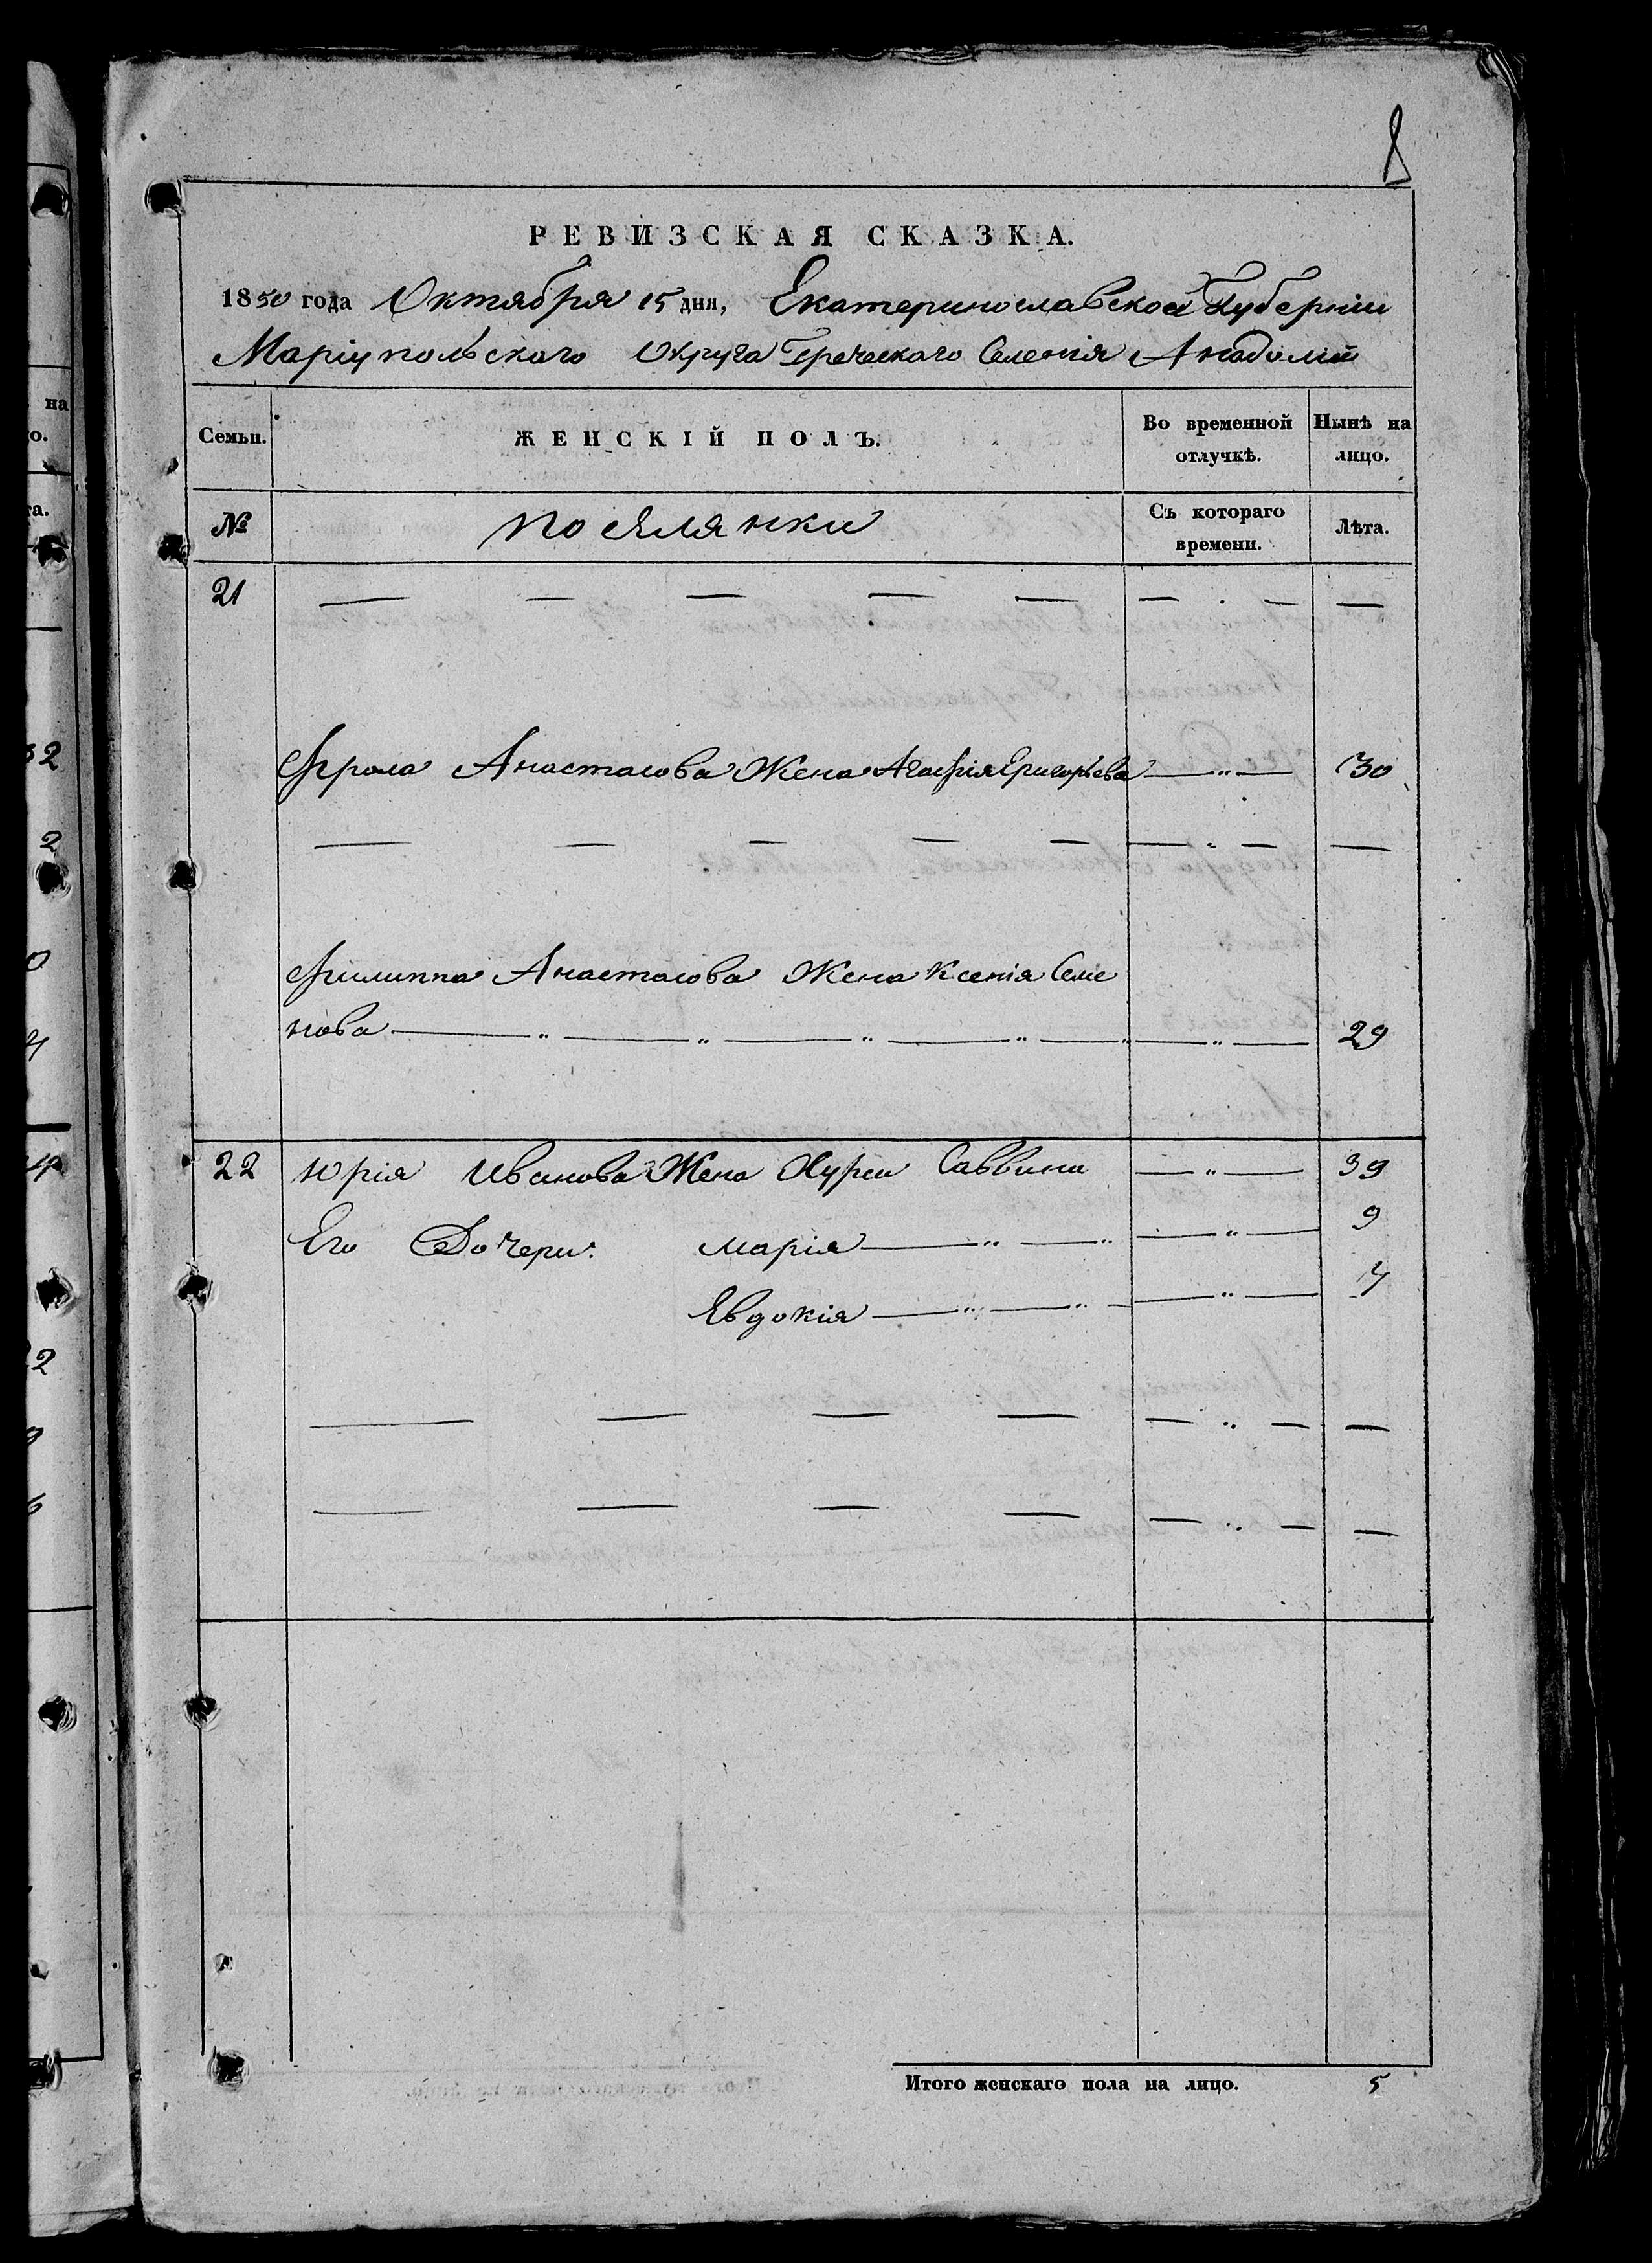 8
РЕВИЗСКАЯ СКАЗКА.
1850 года Октября 15 дня, Екатеринославской Губерніи
Маріупольскаго Округа Греческаго Селенія Анадоліи
Семьи. ЖЕНСКІЙ ПОЛЪ. Во временной отлучкѣ. Нынѣ на лицо.
№ поселянки Съ котораго времени. Лѣта.
21 — — — — — — . — —
Фрола Анастасова Жена Агафія Григорьева — „ — 30
— — — — — — „ — —
Филиппа Анастасова Жена Ксенія Семе
нова — „ — „ — „ — „ — „ — „ — 29
22 Юрія Иванова Жена Хурси Саввина — „ — 39
Его Дочери: Марія — „ — „ — „ — 9
Евдокія — „ — „ — — „ — 4
— — — — — „ — —
— — — — — „ — —
Итого женскаго пола на лицо. 5
на
о.
та.
32
2
0
4
2